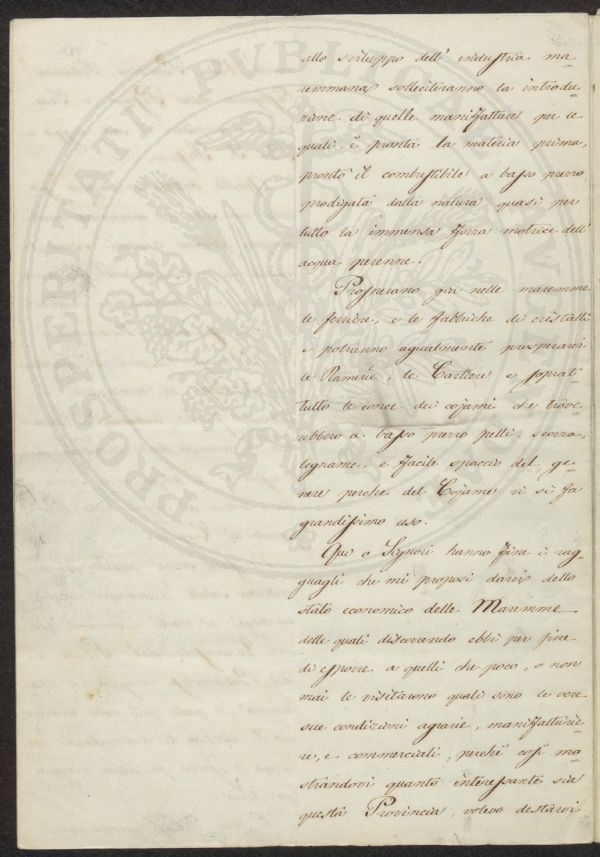 allo sviluppo dell' industria ma-
remmana solleciteranno la introdu-
zione di quelle manifatture per le
quali, è pronta la materia prima,
pronto il combustibile a basso prezzo
prodigata dalla natura quasi per
tutto la immensa forza motrice dell'
acqua perenne.
Prosperano già nelle maremme
le ferriere, e le fabbriche di cristalli
e potranno agualmente prosperarvi
le Ramerie, le Cartiere e soprat-
tutto le conce dei cojami che trove-
rebbero a basso prezzo pelli, scorza,
legname, e facile spaccio del ge-
nere perchè del Cojame vi si fa
grandissimo uso.
Qui o Signori hanno fine i rag-
guagli che mi proposi darvi dello
stato economico delle Maremme
delle quali discorrendo ebbi per fine
di esporre a quelli che poco, o non
mai le visitarono quali sono le vere
sue condizioni agrarie, manifatturie-
re, e commerciali, perchè così mo-
strandovi quanto interessante sia
questa Provincia, volevo destarvi
PROSPERITATI PUBLICAE